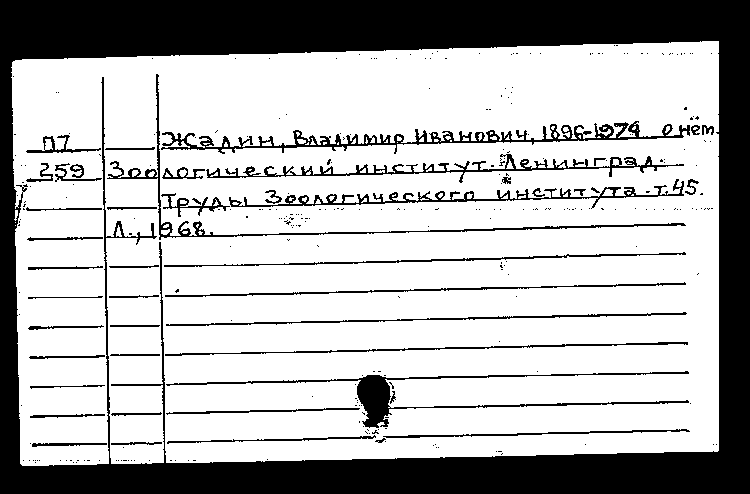 П7 Жадин, Владимир Иванович, 1896-1974 о нём.
259 Зоологический институт. Ленинград.
Труды Зоологического института. т.45.
Л., 1968.